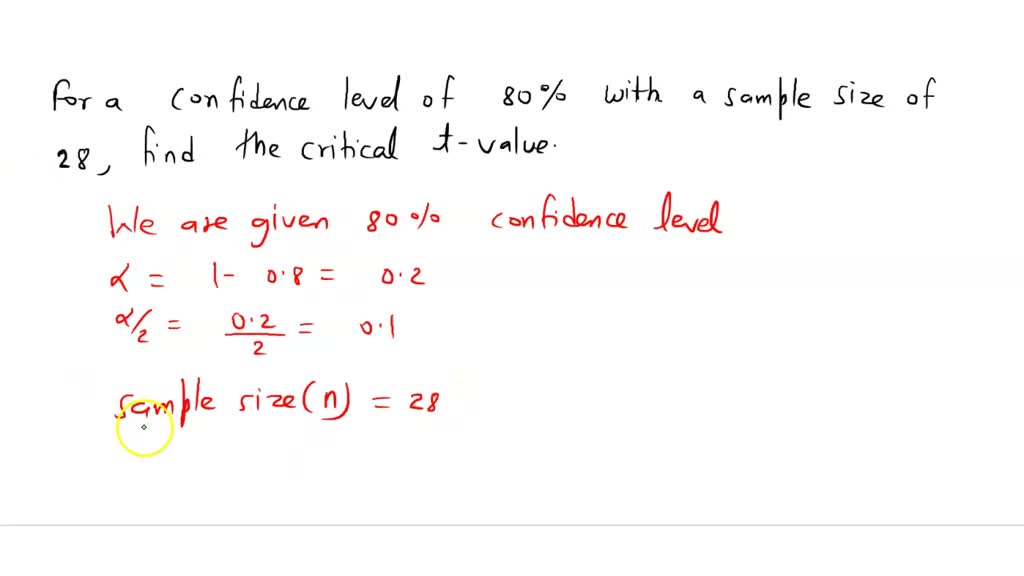 For a confidence level of 80% with a sample size of
28, find the critical t-value.
We are given 80% confidence level
α = 1- 0.8 = 0.2
α/2 = 0.2/2 = 0.1
sample size(n) = 28